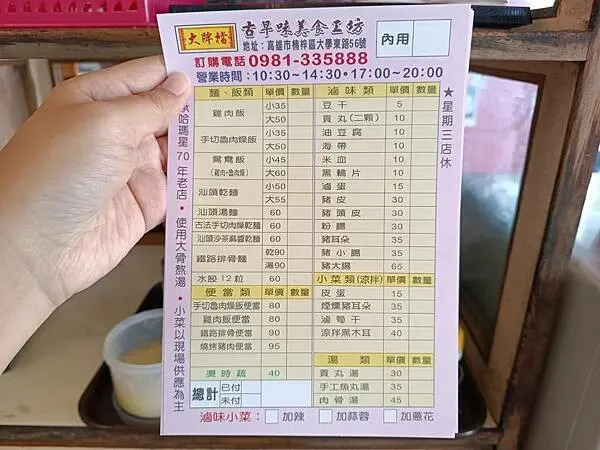 大牌檔
古早味美食工坊
地址：高雄市楠梓區大學東路56號
訂購電話 0981-335888
內用
營業時間：10:30~14:30•17:00~20:00
哈瑪星70年老店•使用大骨熬湯•小菜以現場供應為主
★星期三店休
麵、飯類 單價 數量
雞肉飯 小35
大50
手切魯肉燥飯 小35
大50
鴛鴦飯 小45
(雞肉+魯肉燥) 大60
汕頭乾麵 小50
大55
汕頭湯麵 60
古法手切肉燥乾麵 60
汕頭沙茶麻醬乾麵 60
鐵路排骨麵 乾90
湯90
水餃12粒 60
便當類 單價 數量
手切魯肉燥飯便當 80
雞肉飯便當 80
鐵路排骨便當 90
燒烤豬肉便當 95
燙時蔬 40
總計 已付
未付
滷味類 單價 數量
豆干 5
貢丸(二顆) 10
油豆腐 10
海帶 10
米血 10
黑輪片 10
滷蛋 15
豬皮 30
豬頭皮 30
粉腸 30
豬耳朵 35
豬小腸 35
豬大腸 65
小菜類(涼拌) 單價 數量
皮蛋 15
煙燻豬耳朵 35
滷筍干 35
涼拌黑木耳 40
湯類 單價 數量
貢丸湯 30
手工魚丸湯 35
肉骨湯 45
滷味小菜： 加辣 加蒜蓉 加蔥花